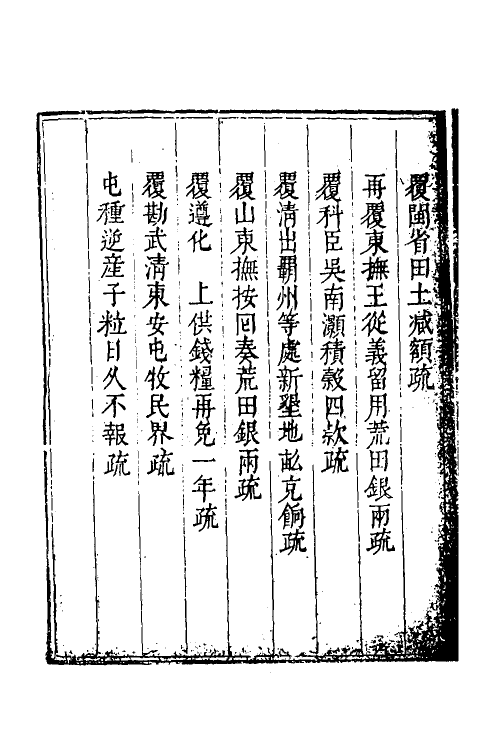 覆閩省田土減額疏
再覆東撫王從義留用荒田銀兩疏
覆科臣吳南灝積穀四款疏
覆淸出霸州等處新墾地畝充餉疏
覆山東撫按回奏荒田銀兩疏
覆遵化　上供錢糧再免一年疏
覆勘武淸東安屯牧民界疏
屯種逆産子粒日久不報疏